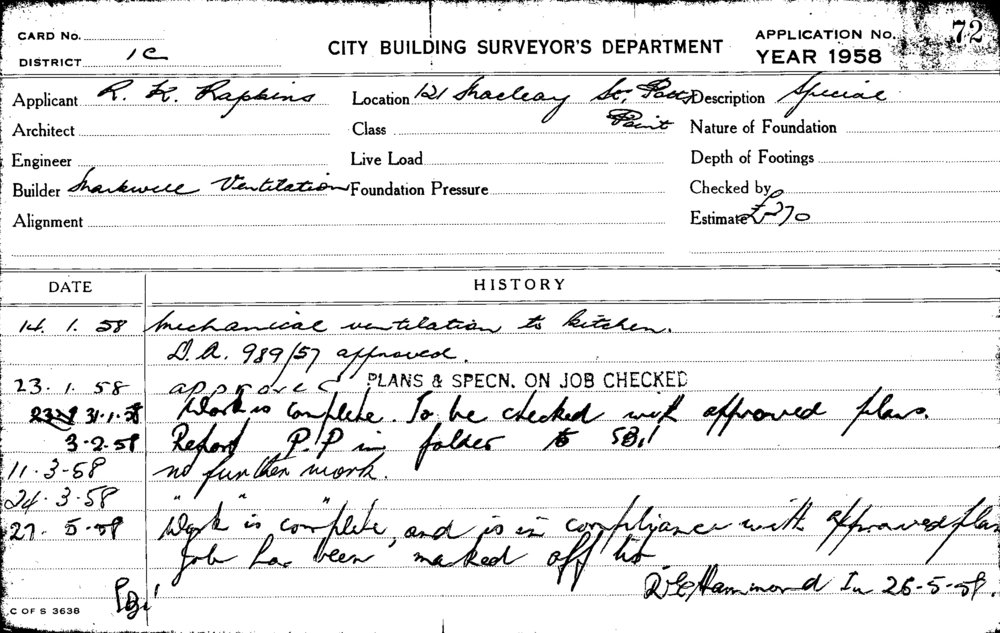 CARD No.
DISTRICT 1C
CITY BUILDING SURVEYOR'S DEPARTMENT
APPLICATION No. 72
YEAR 1958
Applicant R. K. Rapkins
Location 121 Macleay St, Potts Point
Description Special
Architect
Class
Nature of Foundation
Engineer
Live Load
Depth of Footings
Builder Markwell Ventilation
Foundation Pressure
Checked by
Alignment
Estimate £270
DATE HISTORY
14. 1. 58 Mechanical ventilation to kitchen.
D.A. 989/57 approved.
23. 1. 58 approved PLANS & SPECN. ON JOB CHECKED
31.1.58 Work is complete. To be checked with approved plans.
3-2-58 Report P.P in folder to SBI
11-3-58 no further work.
24-3-58 " " "
27. 5-58 Work is complete, and is in compliance with approved plan
Job has been marked off list
Hammond In 26-5-58.
C OF S 3638